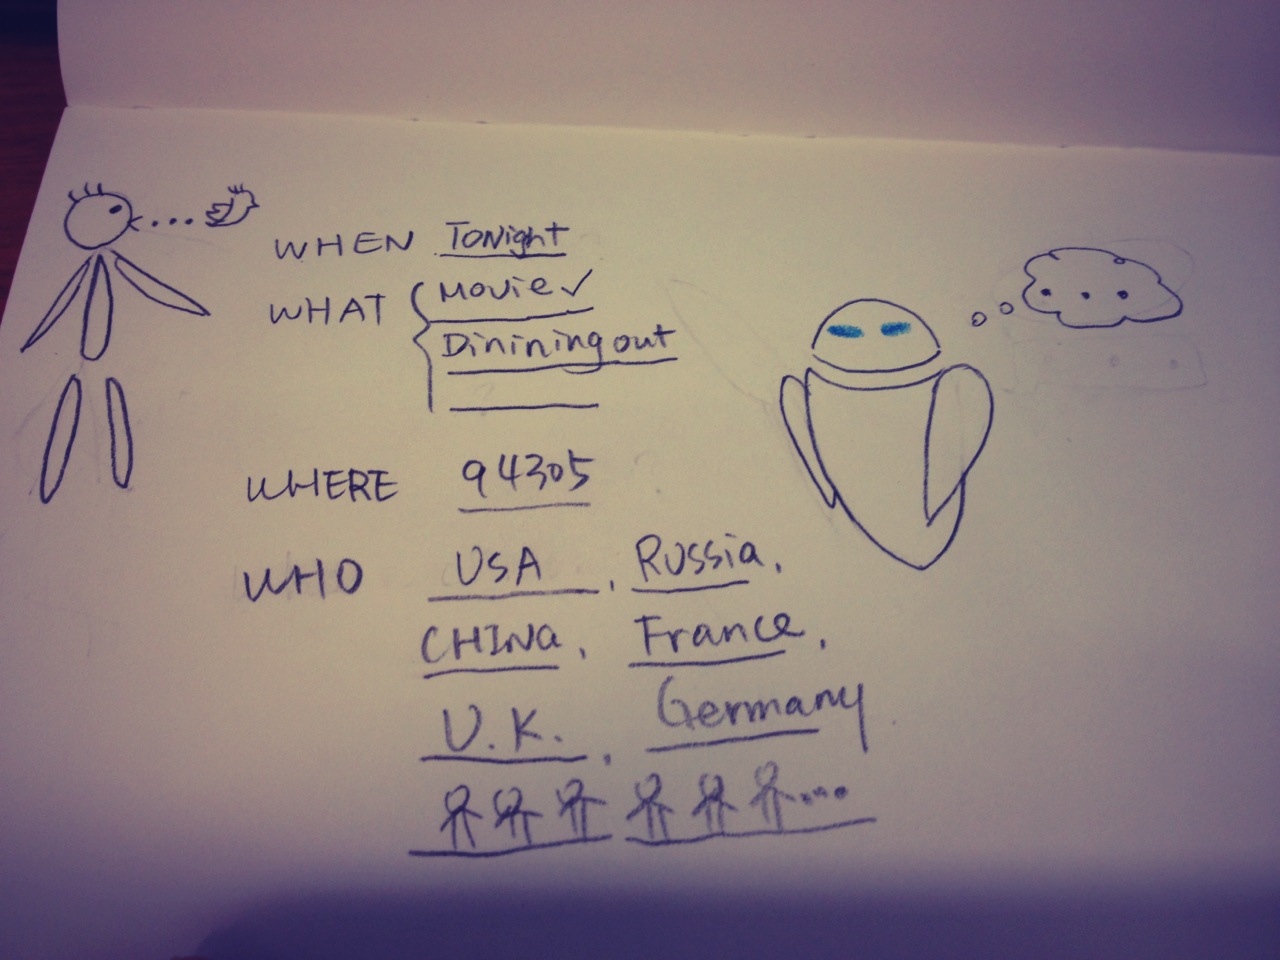 WHEN Tonight
WHAT Movie ✓
Dinining out
WHERE 94305
WHO USA, Russia,
CHINa, France,
U.K., Germany
...